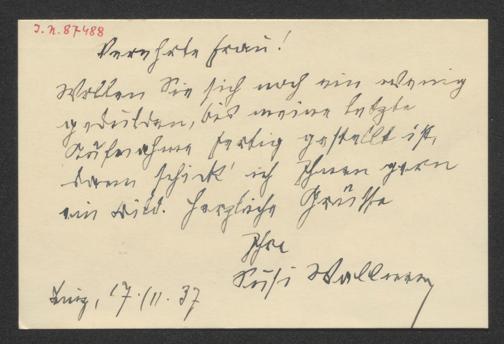 I.N. 87488
Verehrte Frau!
Wollen Sie sich noch ein wenig
gedulden, bis meine letzte
Aufnahme fertig gestellt ist,
dann schick' ich Ihnen gern
ein Bild. Herzliche Grüsse
Ihre
Susi
17./11. 37